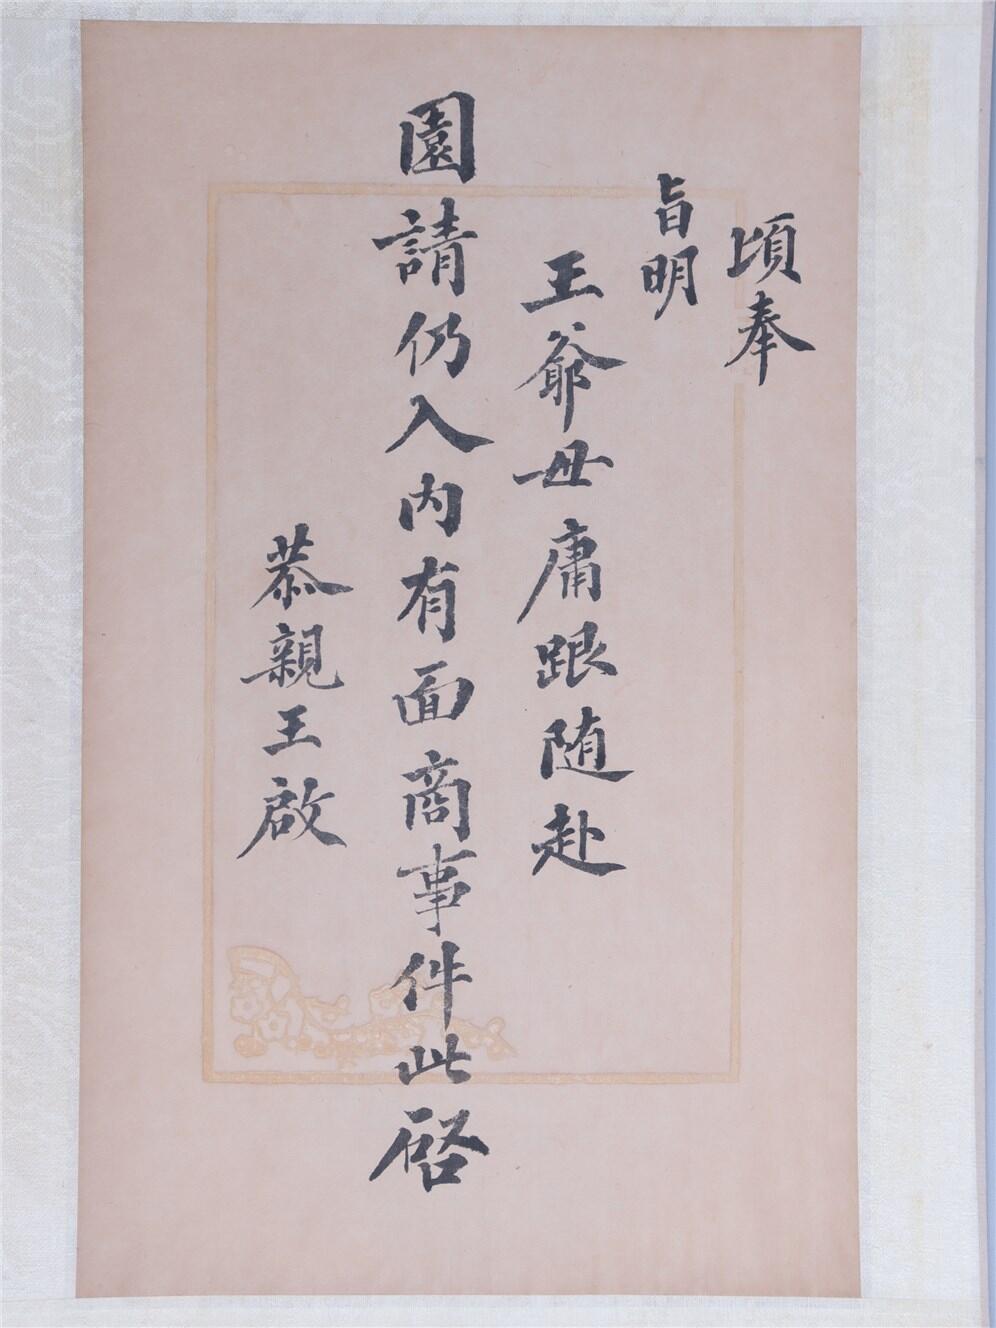 頃奉
旨明
王爺毋庸跟随赴
園請仍入内有面商事件此啓
恭親王啟